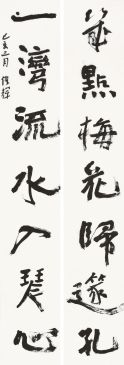 幾點梅花歸篴孔
一灣流水入琴心
乙亥三月